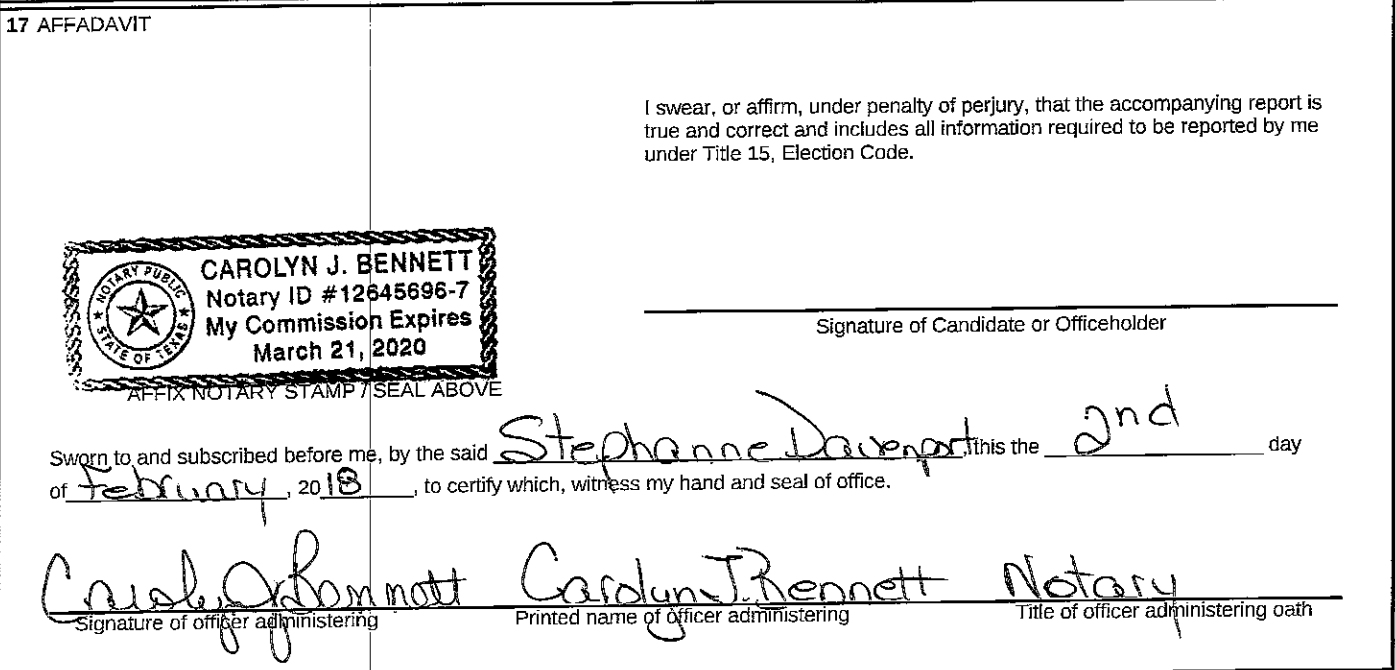 17 AFFADAVIT
I swear, or affirm, under penalty of perjury, that the accompanying report is
true and correct and includes all information required to be reported by me
under Title 15, Election Code.
NOTARY PUBLIC
STATE OF TEXAS
CAROLYN J. BENNETT
Notary ID #12645696-7
My Commission Expires
March 21, 2020
Signature of Candidate or Officeholder
AFFIX NOTARY STAMP / SEAL ABOVE
Sworn to and subscribed before me, by the said Stephanne Davenport, this the 2nd day
of February, 2018, to certify which, witness my hand and seal of office.
Carolyn J Bennett Carolyn J. Bennett Notary
Signature of officer administering Printed name of officer administering Title of officer administering oath